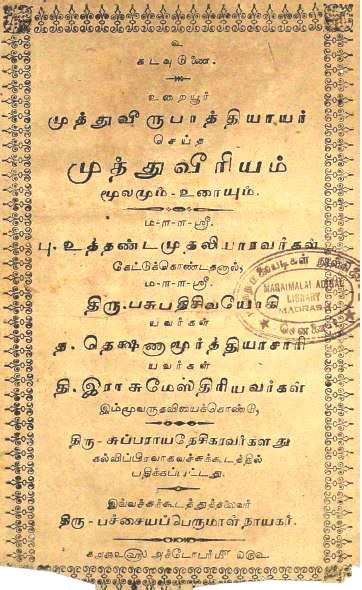 உ
கடவுடுணை.
உறையூர்
முத்துவீருபாத்தியாயர்
செய்த
முத்துவீரியம்
மூலமும் - உரையும்.
ம-ா-ா-ஸ்ரீ.
பு. உத்தண்டமுதலியாரவர்கள்
கேட்டுக்கொண்டதனால்,
ம-ா-ா-ஸ்ரீ.
திரு. பசுபதிசிவயோகி
யவர்கள்
த. தெக்ஷணாமூர்த்தியாசாரி
யவர்கள்
தி. இராசுமேஸ்திரியவர்கள்
இம்மூவருதவியைக்கொண்டு,
திரு - சுப்பராயதேசிகரவர்களது
கல்விப்பிரவாகவச்சுக்கூடத்தில்
பதிக்கப்பட்டது.
இவ்வச்சுக்கூடத்துத்தலைவர்
திரு - பச்சையப்பெருமாள் நாயகர்.
மறைமலையடிகள் நூல்நிலையம்
MARAIMALAI ADIGAL
LIBRARY
MADRAS
சென்னை